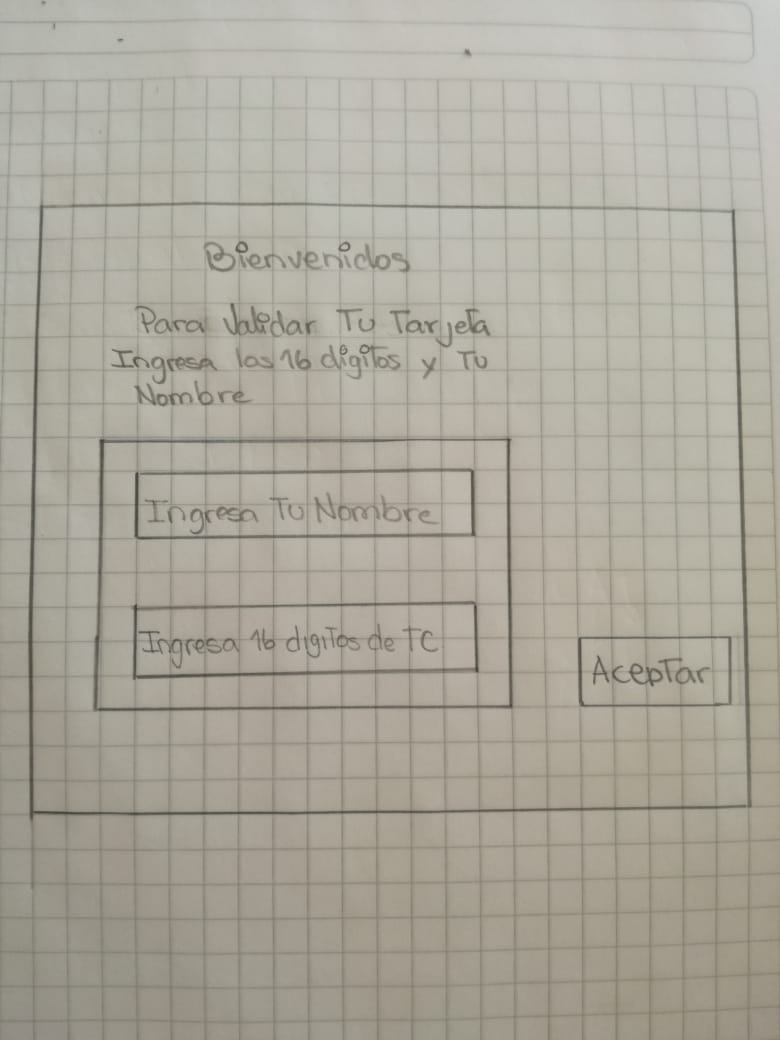 Bienvenidos
Para Validar Tu Tarjeta
Ingresa los 16 digitos y Tu
Nombre
Ingresa Tu Nombre
Ingresa 16 digitos de TC
Aceptar